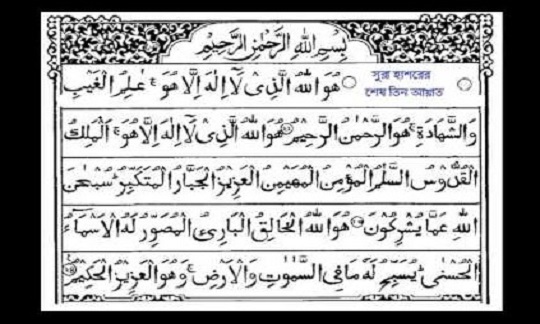 بِسْمِ اللّٰهِ الرَّحْمٰنِ الرَّحِيْمِ
هُوَ اللّٰهُ الَّذِىْ لَآ اِلٰهَ اِلَّا هُوَ ۚ عٰلِمُ الْغَيْبِ
সুরা হাশরের
শেষ তিন আয়াত
وَالشَّهَادَةِ ۚ هُوَ الرَّحْمٰنُ الرَّحِيْمُ ﴿۲۲﴾ هُوَ اللّٰهُ الَّذِىْ لَآ اِلٰهَ اِلَّا هُوَ ۚ اَلْمَلِكُ
الْقُدُّوْسُ السَّلٰمُ الْمُؤْمِنُ الْمُهَيْمِنُ الْعَزِيْزُ الْجَبَّارُ الْمُتَكَبِّرُ ؕ سُبْحٰنَ
اللّٰهِ عَمَّا يُشْرِكُوْنَ ﴿۲۳﴾ هُوَ اللّٰهُ الْخَالِقُ الْبَارِئُ الْمُصَوِّرُ لَهُ الْاَسْمَآءُ
الْحُسْنٰى ؕ يُسَبِّحُ لَهٗ مَا فِى السَّمٰوٰتِ وَالْاَرْضِ ۚ وَهُوَ الْعَزِيْزُ الْحَكِيْمُ ﴿۲۴﴾